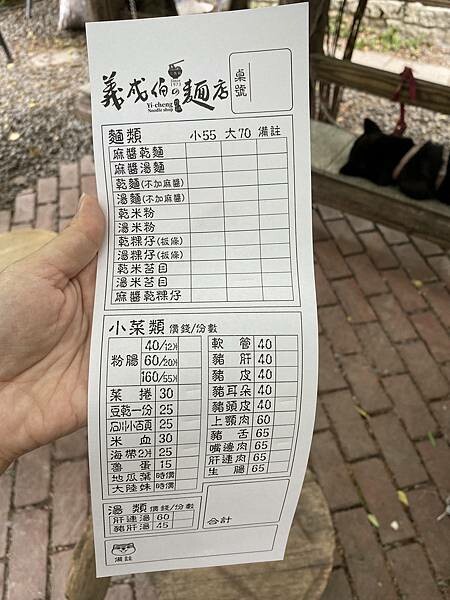 義成伯の麵店
Since 1973
Yi-cheng
Noodle shop
桌號
麵類 小55 大70 備註
麻醬乾麵
麻醬湯麵
乾麵(不加麻醬)
湯麵(不加麻醬)
乾米粉
湯米粉
乾粿仔(粄條)
湯粿仔(粄條)
乾米苔目
湯米苔目
麻醬乾粿仔
小菜類 價錢/份數
粉腸 40/12片
60/20片
160/55片
菜捲 30
豆乾一份 25
25
米血 30
海帶2片 25
魯蛋 15
地瓜葉 時價
大陸妹 時價
軟管 40
豬肝 40
豬皮 40
豬耳朵 40
豬頭皮 40
上顎肉 60
豬舌 65
嘴邊肉 65
肝連肉 65
生腸 65
湯類 價錢/份數
肝連湯 60
豬肝湯 45
合計
備註